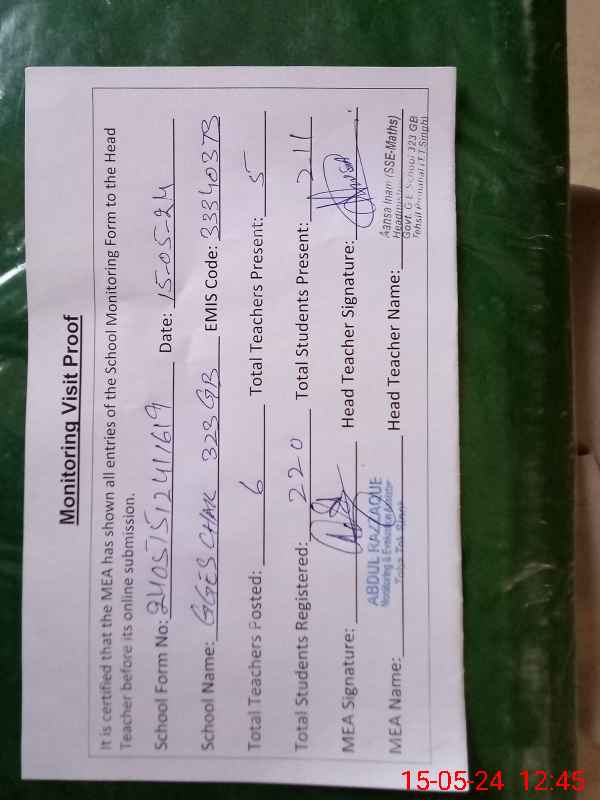 Monitoring Visit Proof
It is certified that the MEA has shown all entries of the School Monitoring Form to the Head
Teacher before its online submission.
School Form No: Date: 15-05-24
School Name: GGES CHAK 323 GB EMIS Code: 33340373
Total Teachers Posted: 6 Total Teachers Present: 5
Total Students Registered: 220 Total Students Present: 211
MEA Signature: Head Teacher Signature:
ABDUL RAZZAQUE
Monitoring & Evaluation
Toba Tek Singh
Aansa Inam (SSE-Maths)
Govt. G.E. School 323 GB
Tehsil (T.T Singh)
MEA Name: Head Teacher Name:
15-05-24 12:45